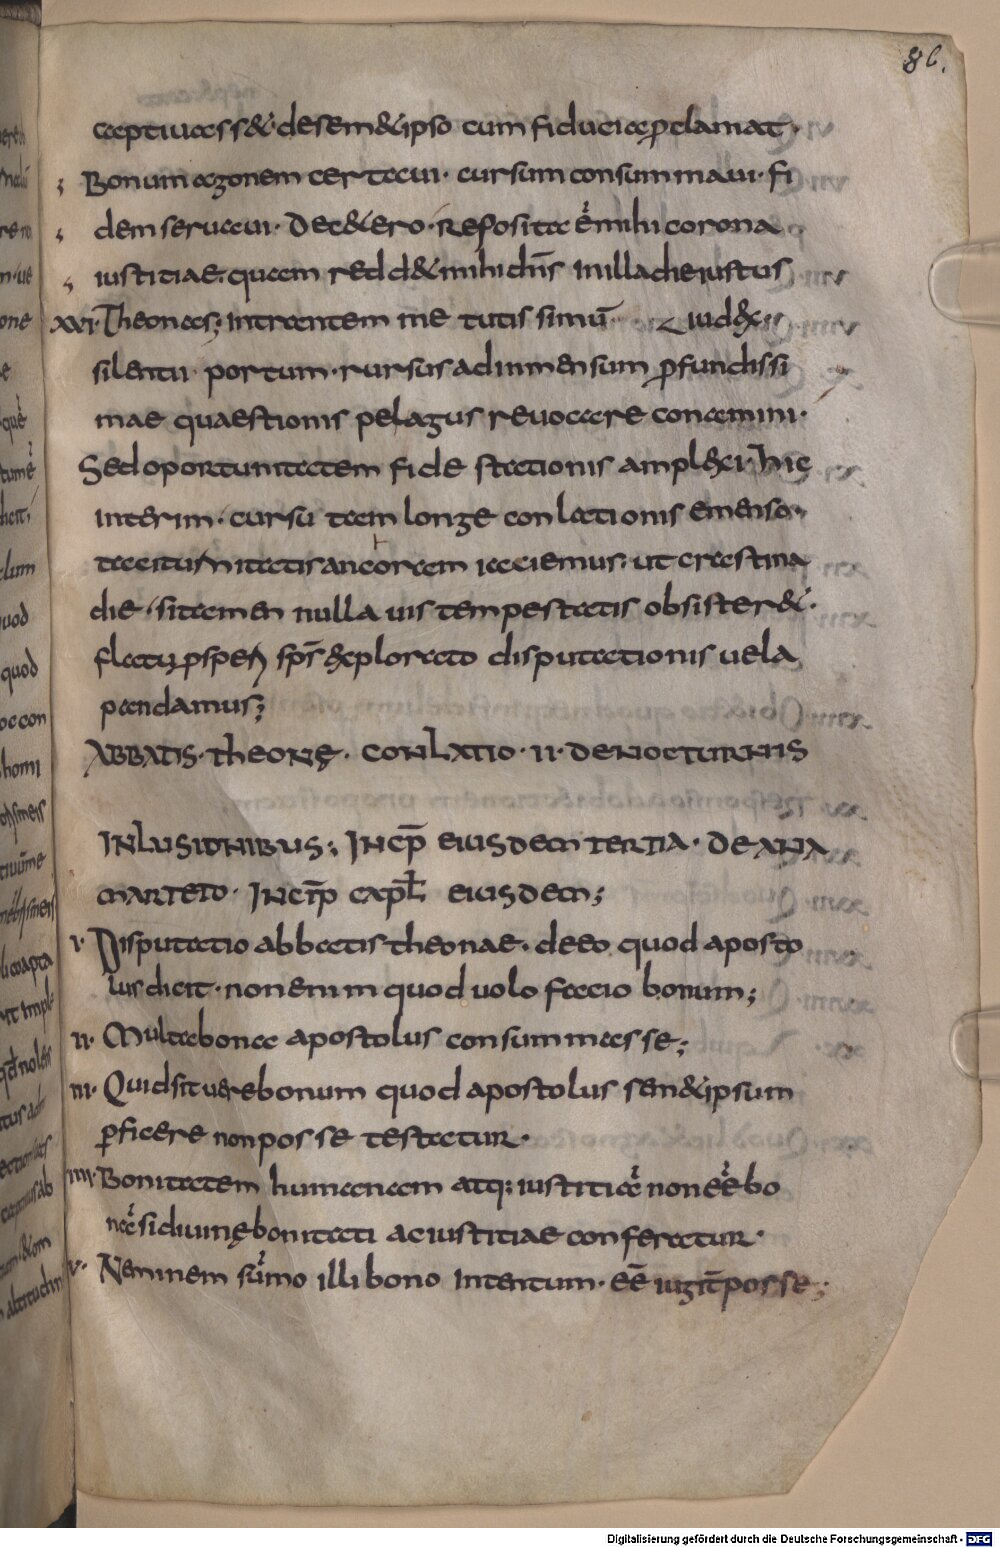 86.
captiuass&. desem&ipso cum fiducia ꝓclamat.
Bonum agonem certaui. cursum consummaui. fi
dem seruaui. Dec&ero. Reposita ē mihi corona
iustitiae. quam redd&mihi dn̄s inilla die iustus
XXVI Theonas; intrantem me tutissimū iud&x
silentii portum. rursus adinmensum ꝓfundissi
mae quaestionis pelagus reuocare conamini.
Sed oportunitatem fide stationis ampl&xi. hic
interim. cursu tam longe conlationis emenso.
taciturnitatis ancoram iaciemus. ut crastina
die. si tamen nulla uis tempestatis obsister&.
flatu ꝓsperi sp̄s &xplorato disputationis uela
pandamus;
ABBATIS. THEONĘ. CONLATIO. II. DENOCTURNIS
INLUSIONIBUS; INCP̄ EIUSDEM TERTIA. DE ANA
MARTETO. INCIP̄ CAPL̄ EIUSDEM;
I. Disputatio abbatis theonae. deeo quod aposto
lus dicit. nonenim quod uolo facio bonum;
II. Multa bona apostolus consummasse;
III. Quid sit uere bonum quod apostolus sem&ipsum
ꝑficere non posse testatur.
IIII. Bonitatem humanam atq; iustitiā non eē bo
nā si diuinę bonitati ac iustitiae conferatur.
V. Neminem sūmo illi bono intentum. eē iugit̄ posse;
Digitalisierung gefördert durch die Deutsche Forschungsgemeinschaft - DFG